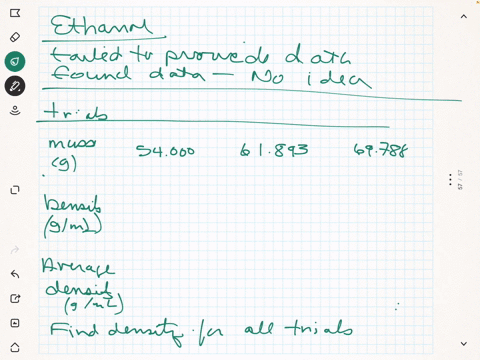 Ethanol
Failed to provide data
found data — No idea
trials
mass 54.000 61.893 69.788
(g)
Density
(g/mL)
Average
density
(g/mL)
Find density for all trials
57 / 57